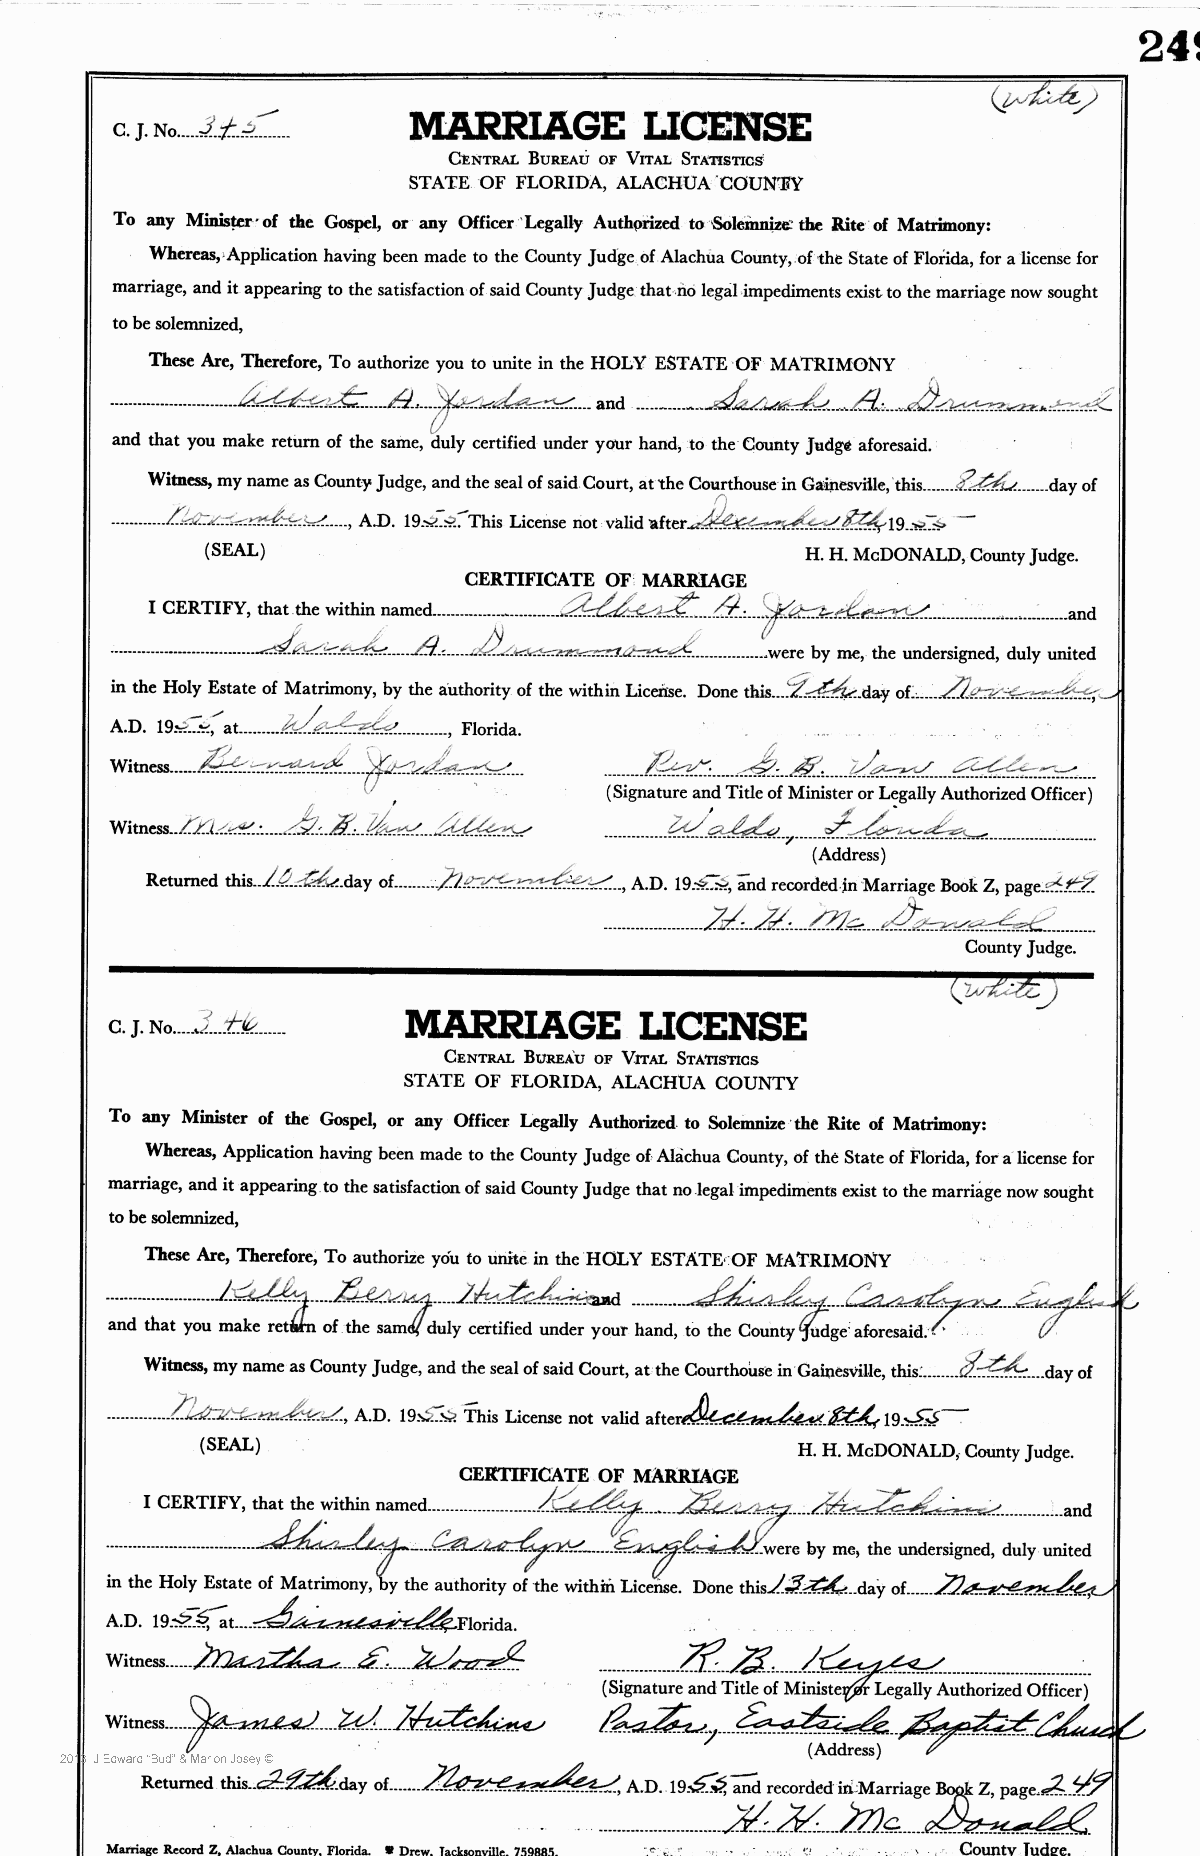 249
(White)
C. J. No. 345 MARRIAGE LICENSE
CENTRAL BUREAU OF VITAL STATISTICS
STATE OF FLORIDA, ALACHUA COUNTY
To any Minister of the Gospel, or any Officer Legally Authorized to Solemnize the Rite of Matrimony:
Whereas, Application having been made to the County Judge of Alachua County, of the State of Florida, for a license for
marriage, and it appearing to the satisfaction of said County Judge that no legal impediments exist to the marriage now sought
to be solemnized,
These Are, Therefore, To authorize you to unite in the HOLY ESTATE OF MATRIMONY
Albert A. Jordan and Sarah A. Drummond
and that you make return of the same, duly certified under your hand, to the County Judge aforesaid.
Witness, my name as County Judge, and the seal of said Court, at the Courthouse in Gainesville, this 8th day of
November, A.D. 1955. This License not valid after December 8th, 1955
(SEAL) H. H. McDONALD, County Judge.
CERTIFICATE OF MARRIAGE
I CERTIFY, that the within named Albert A. Jordan and
Sarah A. Drummond were by me, the undersigned, duly united
in the Holy Estate of Matrimony, by the authority of the within License. Done this 9th day of November,
A.D. 1955, at Waldo, Florida.
Witness Bernard Jordan Rev. G. B. Van Allen
(Signature and Title of Minister or Legally Authorized Officer)
Witness Mrs. G. B. Van Allen Waldo, Florida
(Address)
Returned this 10th day of November, A.D. 1955, and recorded in Marriage Book Z, page 249
H. H. Mc Donald
County Judge.
(White)
C. J. No. 346 MARRIAGE LICENSE
CENTRAL BUREAU OF VITAL STATISTICS
STATE OF FLORIDA, ALACHUA COUNTY
To any Minister of the Gospel, or any Officer Legally Authorized to Solemnize the Rite of Matrimony:
Whereas, Application having been made to the County Judge of Alachua County, of the State of Florida, for a license for
marriage, and it appearing to the satisfaction of said County Judge that no legal impediments exist to the marriage now sought
to be solemnized,
These Are, Therefore, To authorize you to unite in the HOLY ESTATE OF MATRIMONY
Kelly Berry Hutchins and Shirley Carolyn English
and that you make return of the same, duly certified under your hand, to the County Judge aforesaid.
Witness, my name as County Judge, and the seal of said Court, at the Courthouse in Gainesville, this 8th day of
November, A.D. 1955 This License not valid after December 8th, 1955
(SEAL) H. H. McDONALD, County Judge.
CERTIFICATE OF MARRIAGE
I CERTIFY, that the within named Kelly Berry Hutchins and
Shirley Carolyn English were by me, the undersigned, duly united
in the Holy Estate of Matrimony, by the authority of the within License. Done this 13th day of November,
A.D. 1955, at Gainesville, Florida.
Witness Martha E. Wood R. B. Keyes
(Signature and Title of Minister or Legally Authorized Officer)
Witness James W. Hutchins Pastor, Eastside Baptist Church
(Address)
J Edward "Bud" & Marion Josey ©
Returned this 29th day of November, A.D. 1955, and recorded in Marriage Book Z, page 249
H. H. Mc Donald
County Judge.
Marriage Record Z, Alachua County, Florida. Drew, Jacksonville, 759885.